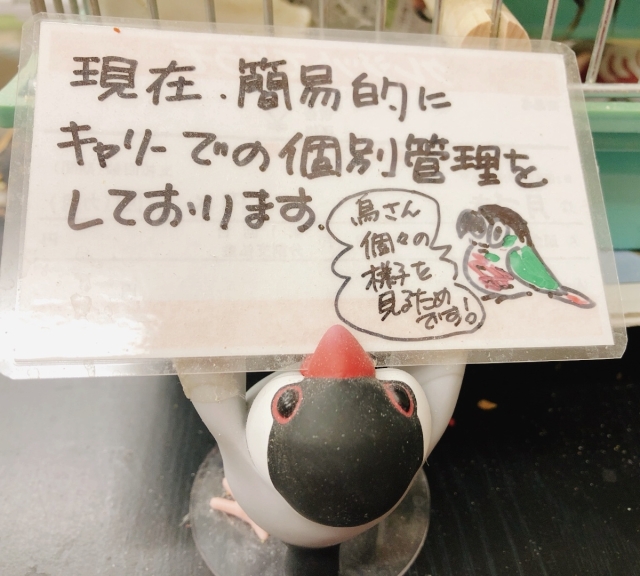 現在、簡易的に
キャリーでの個別管理を
しております。
鳥さん
個々の
様子を
見るため
です!。